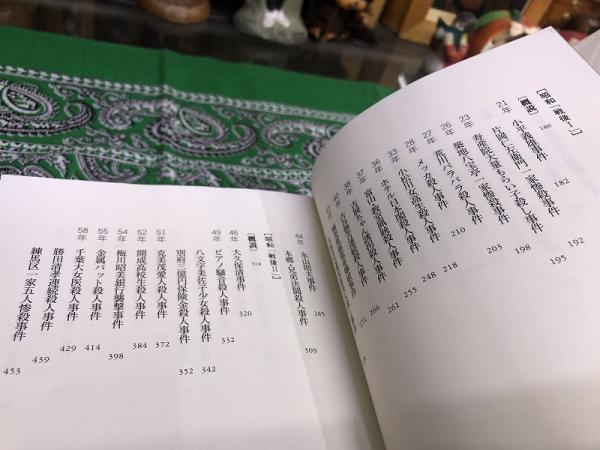 ［昭和〔戦後Ⅰ〕］
［概説］ 180
21年 小平義雄事件 182
片岡仁左衛門一家惨殺事件 192
23年 寿産院大量もらい子殺し事件 195
26年 築地八宝亭一家惨殺事件 198
27年 荒川バラバラ殺人事件 203
28年 メッカ殺人事件 210
33年 小松川女高生殺人事件 218
ホテル日本閣殺人事件 248
36年
38年 吉展ちゃん誘拐殺人事件 261
266
271
44年 永山則夫事件 285
309
［昭和〔戦後Ⅱ〕］
［概説］ 318
46年 大久保清事件 320
49年 ピアノ騒音殺人事件 332
八文字美佐子少女殺人事件 342
別府三億円保険金殺人事件 352
51年 克美茂愛人殺人事件 372
52年 開成高校生殺人事件 384
54年 梅川昭美銀行襲撃事件 398
55年 金属バット殺人事件 414
58年 千葉大女医殺人事件 429
勝田清孝連続殺人事件 439
練馬区一家五人惨殺事件 453